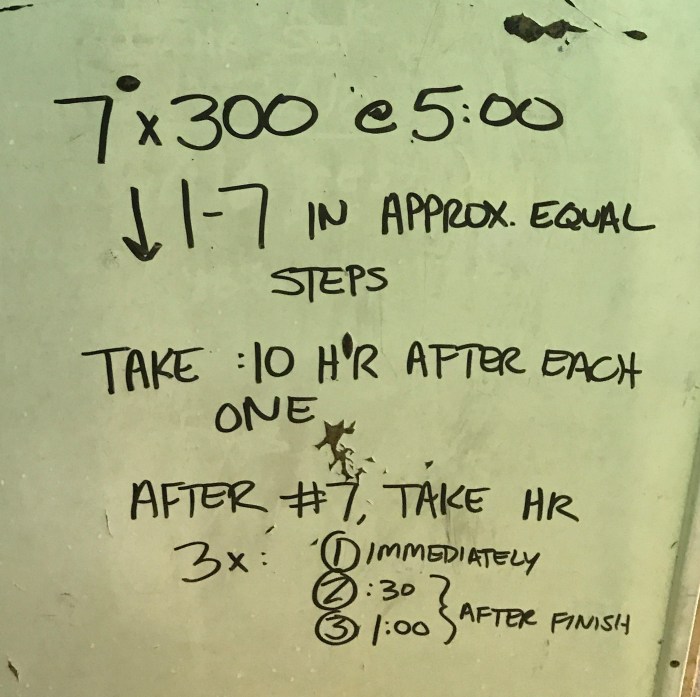 7 x 300 @ 5:00
↓ 1-7 IN APPROX. EQUAL
STEPS
TAKE :10 HR AFTER EACH
ONE
AFTER #7, TAKE HR
3x: ① IMMEDIATELY
② :30
③ 1:00 } AFTER FINISH